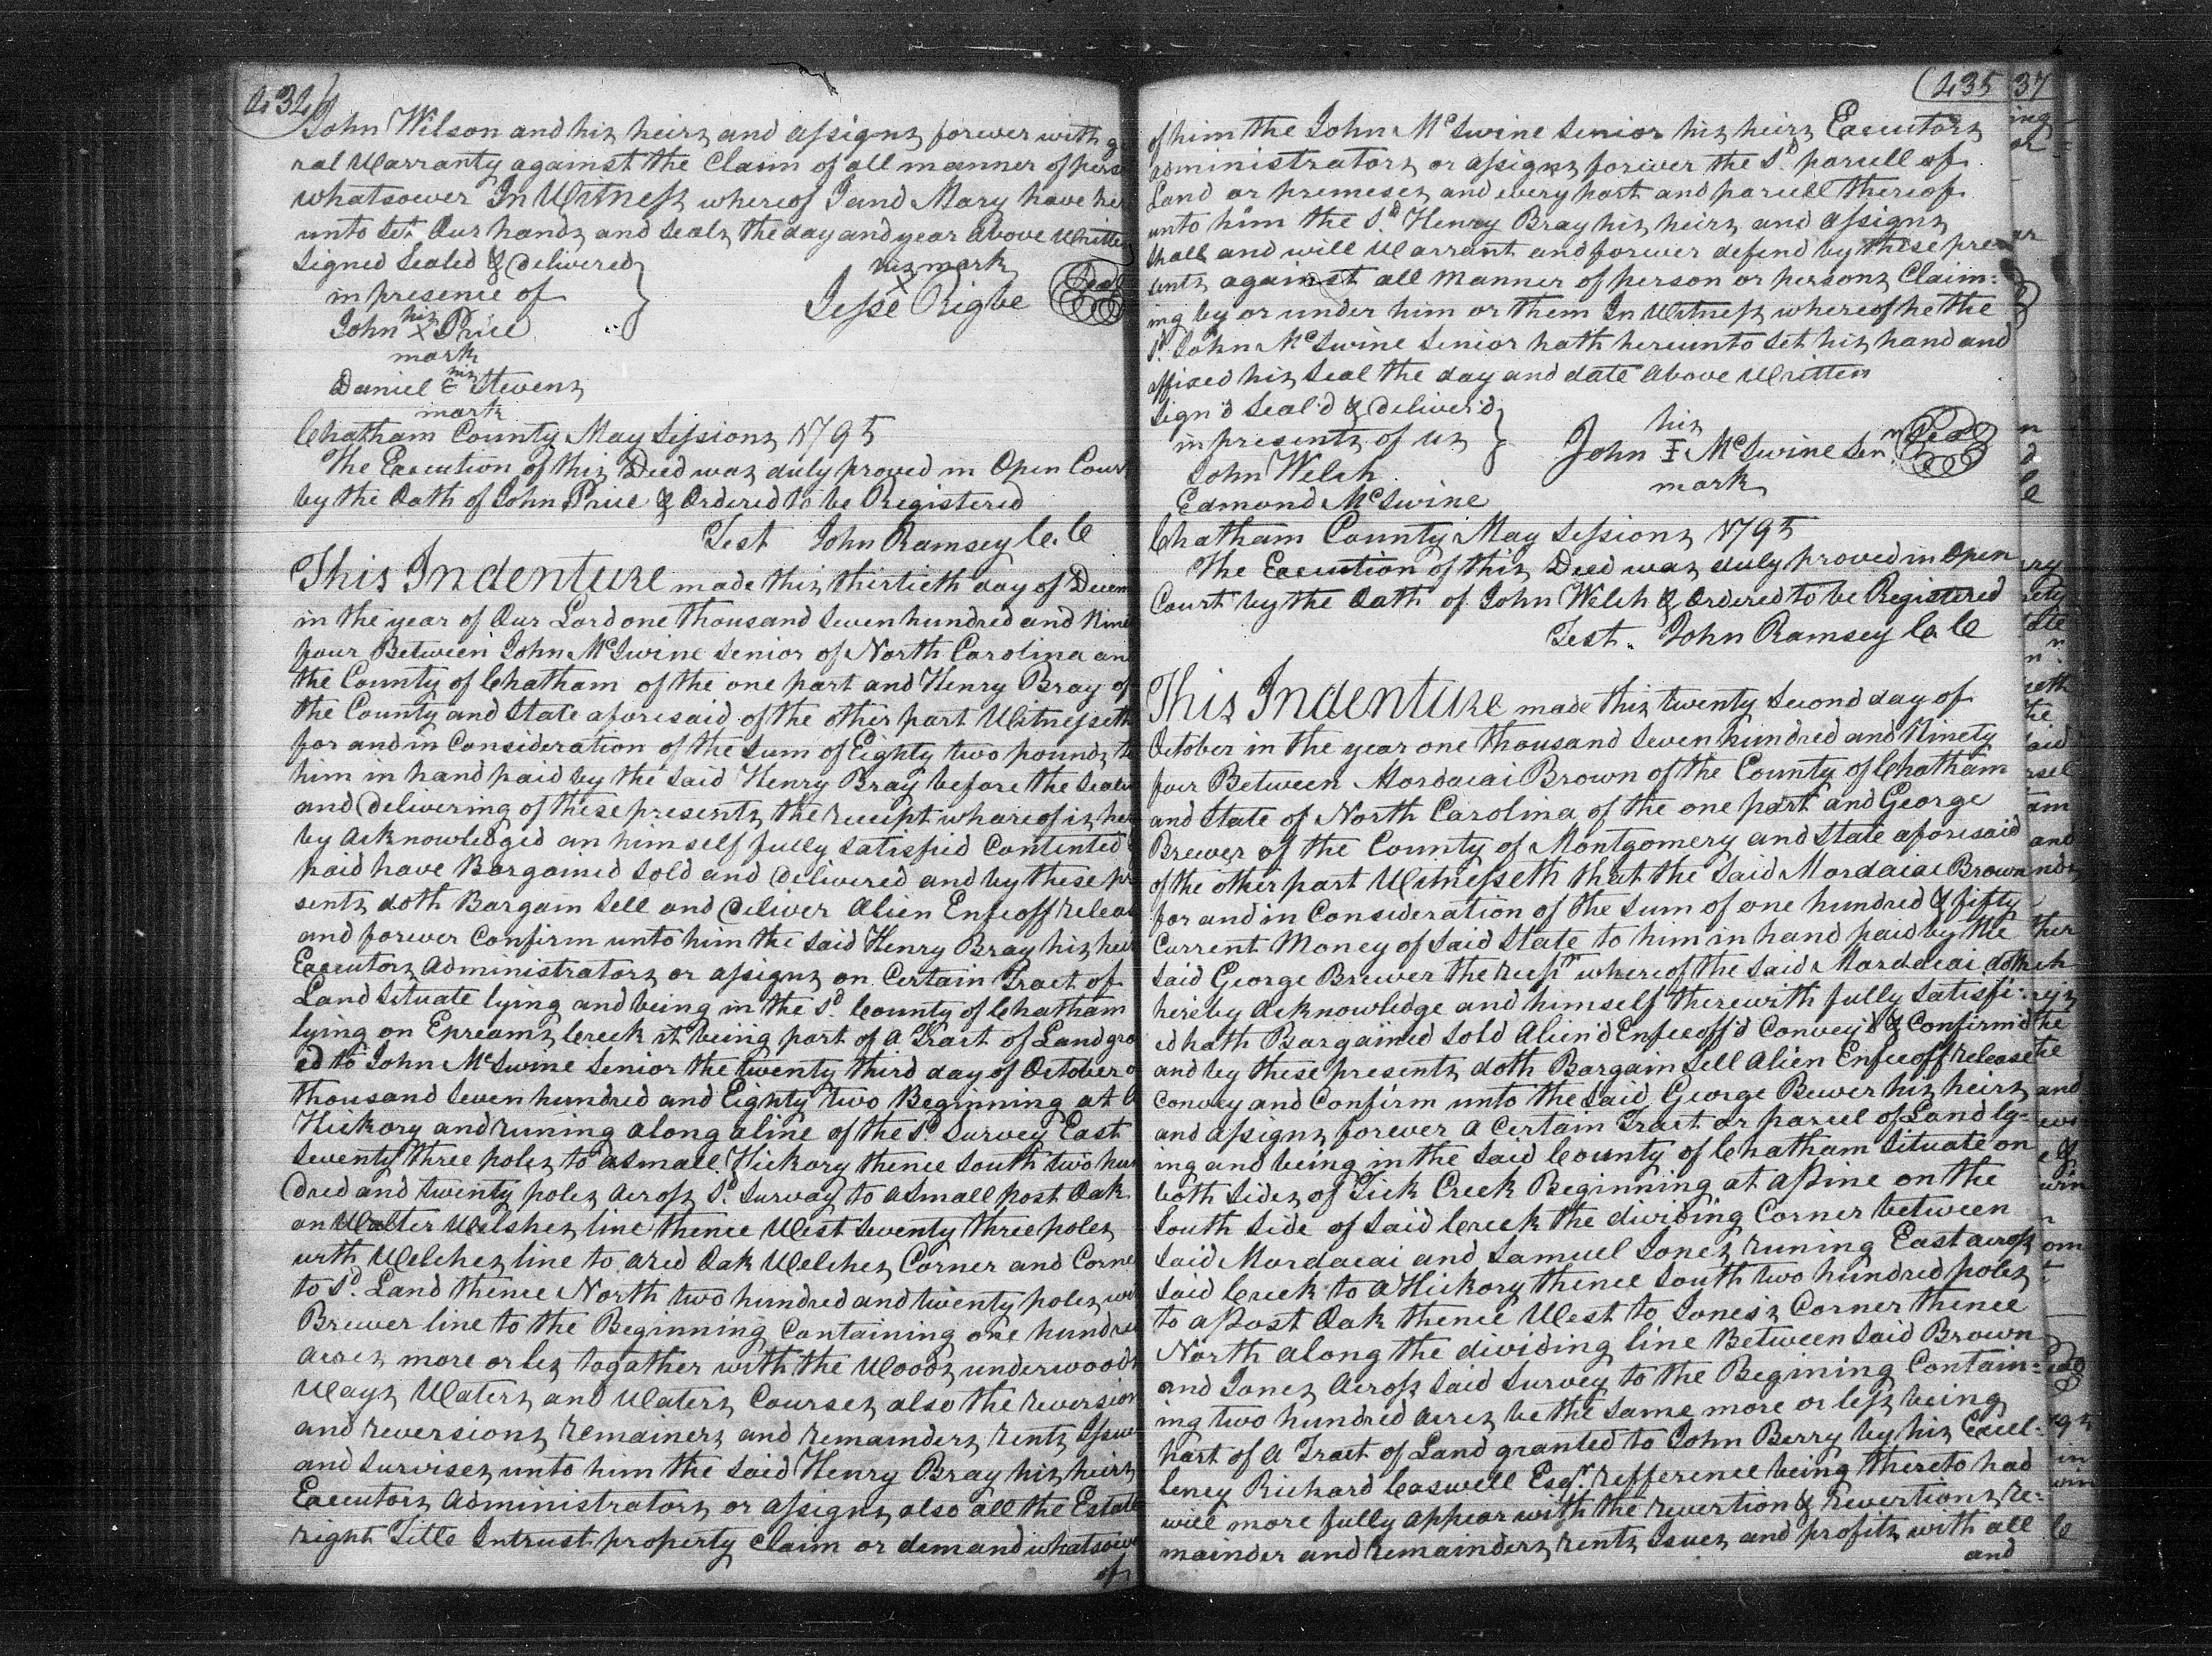 434
John Wilson and his heirs and assigns forever with g
ral Warranty against the Claim of all manner of pers
whatsoever In Witness whereof I and Mary have her
unto Set Our hands and Seals the day and year above Written
Signed Sealed & Delivered
in presence of
his mark
Jesse X Rigbe Seal
John his X Price
mark
Daniel his E Stevens
mark
Chatham County May Sessions 1795
The Execution of this Deed was duly proved in Open Cour
by the Oath of John Price & Ordered to be Registered
Test John Ramsey C.C
This Indenture made this thirtieth day of Decem
in the year of Our Lord one thousand Seven hundred and Nine
four Between John McSwine Senior of North Carolina an
the County of Chatham of the one part and Henry Bray of
the County and State aforesaid of the other part Witnesseth
for and in Consideration of the Sum of Eighty two pounds to
him in hand paid by the Said Henry Bray before the Seal
and Delivering of these presents the receipt whareof is her
by Acknowledged an himself fully Satisfied Contented
paid have Bargained Sold and Delivered and by these pr
sents doth Bargain Sell and Deliver Alien Enfeoff releas
and forever Confirm unto him the Said Henry Bray his heir
Executors Administrators or assigns on Certain Tract of
Land Situate lying and being in the Sd. County of Chatham
lying on Epreams Creek it being part of a Tract of Land gra
ed to John McSwine Senior the twenty third day of October o
thousand Seven hundred and Eighty two Beginning at a
Hickory and runing along a line of the Sd. Survey East
Seventy three poles to a small Hickory thence South two hun
dred and twenty poles across Sd. Survay to a Small post Oak
on Walter Welshes line thence West Seventy three poles
with Welches line to a red Oak Welches Corner and Corne
to Sd. Land thence North two hundred and twenty poles wi
Brewer line to the Beginning Containing one hundred
acres more or les togather with the Woods underwoods
Ways Waters and Waters Courses also the reversion
and reversions remainers and remainders rents Issue
and Survises unto him the Said Henry Bray his heirs
Executors Administrators or assigns also all the Estate
right Title Intrust property Claim or demand whatsoev
of
435
of him the John McSwine Senior his heirs Executors
administrators or assigns forever the Sd. parcell of
Land or premeses and every part and parcell thereof
unto him the Sd. Henry Bray his heirs and assigns
Shall and will Warrant and forever defend by these pre
sents against all manner of person or persons Claim:
ing by or under him or them In Witness whereof he the
Sd. John McSwine Senior hath hereunto Set his hand and
affixed his Seal the day and date above Written
Sign'd Seal'd & deliver'd
in presents of us
his
John I McSwine Senr. Seal
mark
John Welch
Edmond McSwine
Chatham County May Sessions 1795
The Execution of this Deed was duly proved in Open
Court by the Oath of John Welch & Ordered to be Registered
Test. John Ramsey C.C
This Indenture made this twenty Second day of
October in the year one thousand Seven hundred and Ninety
four Between Mordacai Brown of the County of Chatham
and State of North Carolina of the one part and George
Brewer of the County of Montgomery and State aforesaid
of the other part Witnesseth that the Said Mordacai Brown
for and in Consideration of the Sum of one hundred & fifty
Current Money of Said State to him in hand paid by the
Said George Brewer the recpt whereof the Said Mordacai doth
hereby Acknowledge and himself therewith fully Satisfi:
ed hath Bargained Sold Alien'd Enfeeoff'd Convey'd & Confirm'd
and by these presents doth Bargain Sell Alien Enfeeoff release
Convey and Confirm unto the Said George Bewer his heirs
and assigns forever a Certain Tract or parcel of Land ly=
ing and being in the Said County of Chatham Situate on
both Sides of Tick Creek Beginning at a Pine on the
South Side of Said Creek the dividing Corner between
Said Mordacai and Samuel Jones runing East across
Said Creek to a Hickory thence South two hundred poles
to a Post Oak thence West to Jones's Corner thence
North along the dividing line Between Said Brown
and Jones Across Said Survey to the Begining Contain=
ing two hundred acres be the Same more or less being
part of a Tract of Land granted to John Berry by his Excel:
lency Richard Caswell Esqr. refference being thereto had
will more fully appear with the revertion & revertions re:
mainder and remainders rents Issues and profits with all
and
37